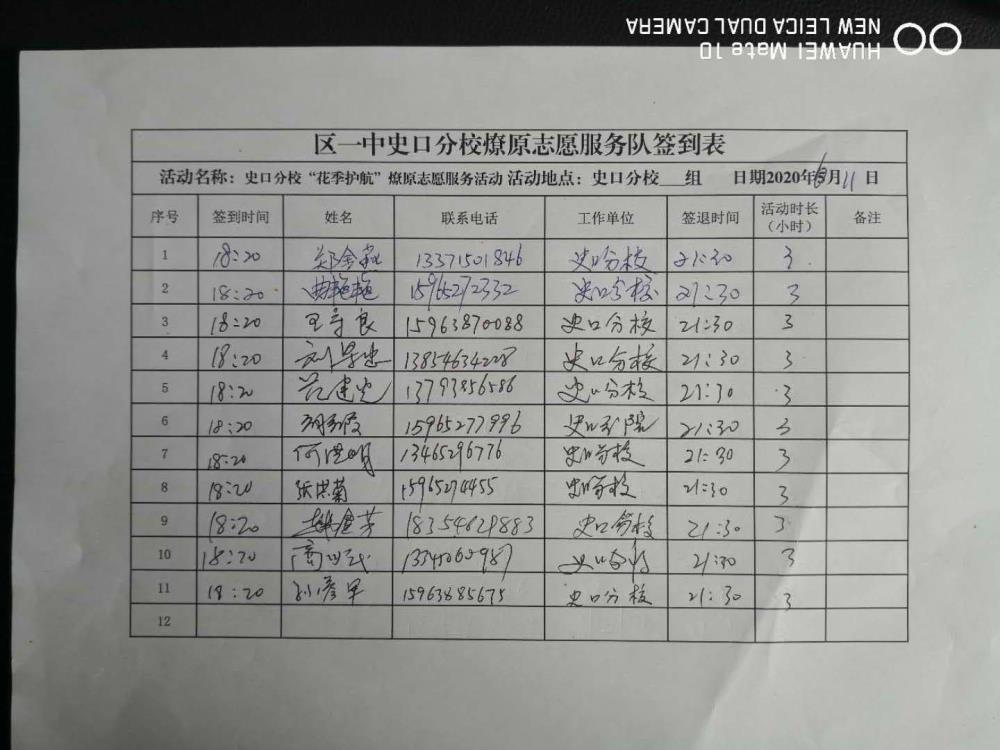 HUAWEI Mate 10
NEW LEICA DUAL CAMERA
区一中史口分校燎原志愿服务队签到表
活动名称：史口分校“花季护航”燎原志愿服务活动 活动地点：史口分校__组 日期2020年 月11日
序号 签到时间 姓名 联系电话 工作单位 签退时间 活动时长（小时） 备注
1 18:20 13371501846 史口分校 21:30 3
2 18:20 曲艳艳 15965272332 史口分校 21:30 3
3 18:20 王守良 15963870088 史口分校 21:30 3
4 18:20 刘 忠 13854634228 史口分校 21:30 3
5 18:20 建 13793856586 史口分校 21:30 3
6 18:20 15965277996 史口 21:30 3
7 18:20 何 明 13465296776 史口分校 21:30 3
8 18:20 张洪菊 15965274455 史口分校 21:30 3
9 18:20 芳 18354629883 史口分校 21:30 3
10 18:20 商 史口分校 21:30 3
11 18:20 孙彦军 15963885675 史口分校 21:30 3
12